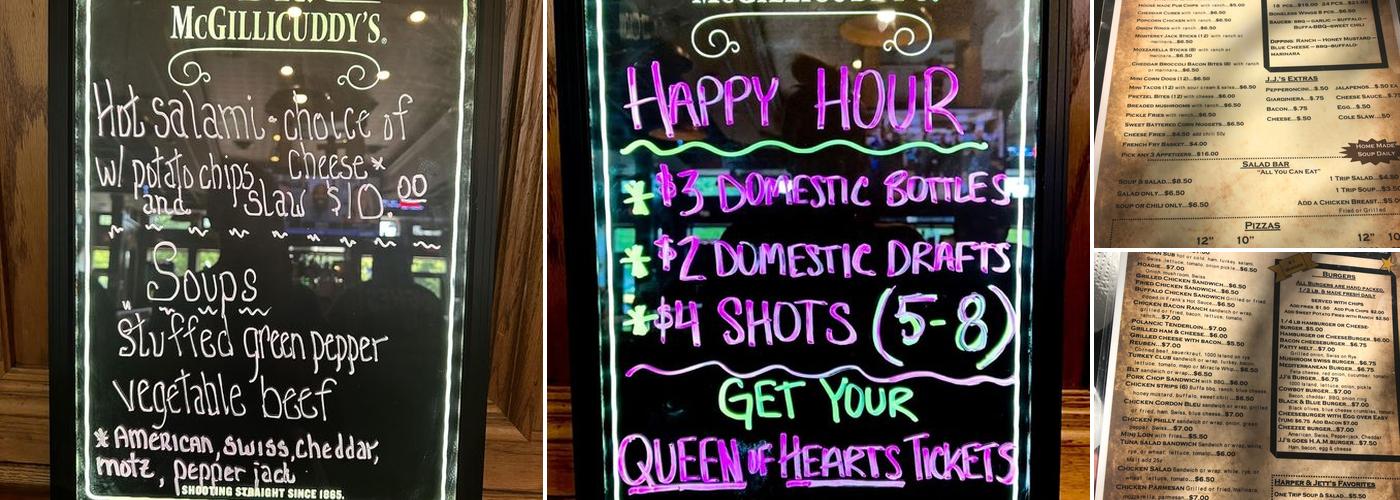 McGILLICUDDY'S®
Hot salami - choice of
cheese*
w/ potato chips
and slaw $10.00
Soups
stuffed green pepper
vegetable beef
* American, swiss, cheddar,
motz, pepper jack
SHOOTING STRAIGHT SINCE 1865.
HAPPY HOUR
* $3 DOMESTIC BOTTLES
* $2 DOMESTIC DRAFTS
* $4 SHOTS (5-8)
GET YOUR
QUEEN OF HEARTS TICKETS
House made Pub Chips with ranch...$5.00
Cheddar Curds with ranch...$6.50
Popcorn Chicken with ranch...$6.50
Onion Rings with ranch...$6.50
Monterey Jack Sticks (12) with ranch or
marinara...$6.50
Mozzarella Sticks (8) with ranch or
marinara...$6.50
Cheddar Broccoli Bacon Bites (8) with ranch
or marinara...$6.50
Mini Corn Dogs (12)...$6.50
Mini Tacos (12) with sour cream & salsa...$6.50
Pretzel Bites (12) with cheese...$6.00
Breaded Mushrooms with ranch...$6.50
Pickle Fries with ranch...$6.50
Sweet Battered Corn Nuggets...$6.50
Cheese Fries...$4.50 add chili 50¢
French Fry Basket...$4.00
Pick any 3 Appetizers...$16.00
Boneless Wings 8 pcs...$6.50
Sauces: BBQ – Garlic – Buffalo –
Buffa-BBQ – Sweet Chili
Dipping: Ranch – Honey Mustard –
Blue Cheese – BBQ – Buffalo-
Marinara
J.J.'s Extras
Pepperoncini...$.50
Giardiniera...$.75
Bacon...$.75
Cheese...$.50
Jalapenos...$.50 ea
Cheese Sauce...$.75
Egg...$.50
Cole Slaw...50
Home Made
Soup Daily
Salad Bar
"All You Can Eat"
Soup & Salad...$8.50
Salad only...$6.50
Soup or Chili only...$6.50
1 Trip Salad...$4.50
1 Trip Soup...
Add a Chicken Breast...
Fried or Grilled
Pizzas
12" 10" 12" 10
Hoagie...$7.00
Onion mushroom, Swiss
Grilled Chicken Sandwich...$6.50
Fried Chicken Sandwich...$6.50
Buffalo Chicken Sandwich Grilled or fried
dipped in Frank's Hot Sauce...$6.50
Chicken Bacon Ranch Sandwich or wrap,
grilled or fried, bacon, lettuce, tomato,
ranch...$7.00
Polancic Tenderloin...$7.00
Grilled Ham & Cheese...$6.00
Grilled Cheese with Bacon...$5.50
Reuben...$7.00
Corned beef, sauerkraut, 1000 Island on rye
Turkey Club sandwich or wrap, bacon,
lettuce, tomato, mayo or Miracle Whip...$6.50
BLT sandwich or wrap...$6.50
Pork Chop Sandwich with BBQ...$6.00
Chicken Strips (6) Buffa bbq, ranch, blue cheese,
honey mustard, buffalo, sweet chili...$6.50
Chicken Cordon Bleu sandwich or wrap, grilled
or fried, ham, Swiss, blue cheese...$7.00
Chicken Philly sandwich or wrap, onion, green
pepper, Swiss...$7.00
Mini Loin with fries...$5.50
Tuna Salad Sandwich Sandwich or wrap, white,
rye, or wheat, lettuce, tomato...$6.00
Chicken Salad Sandwich or wrap, white, rye, or
wheat, lettuce, tomato...$6.50
Chicken Parmesan Grilled or fried, marinara,
mozzarella, parmesan...$7.00
Burgers
All Burgers are hand packed,
1/2 lb. & made fresh daily
Served with chips
Add Fries $1.50 Add Pub Chips $2.00
Add Sweet Potato Fries with Ranch $2.50
1/4 lb hamburger or cheese-
burger...$5.00
Hamburger or Cheeseburger...$6.00
Bacon Cheeseburger...$6.75
Patty Melt...$7.00
Grilled onion, Swiss on Rye
Mushroom Swiss Burger...$6.75
Mediterranean Burger...$6.75
Feta cheese, red onion, cucumber, tomato
JJ's Burger...$6.75
1000 Island, lettuce, onion, pickle
Cowboy Burger...$7.00
Bacon, cheddar, BBQ, onion ring
Black & Blue Burger...$7.00
Black olives, blue cheese crumbles,
Cheeseburger with Egg over Easy
(yum) $6.75 Add Bacon $7.00
Cheezee Burger...$7.00
American, Swiss, Pepperjack, Cheddar
JJ's Goes H.A.M. Burger...$7.50
Ham, bacon, egg & cheese
Harper & Jett's Favorites
One Trip Soup & Salad...